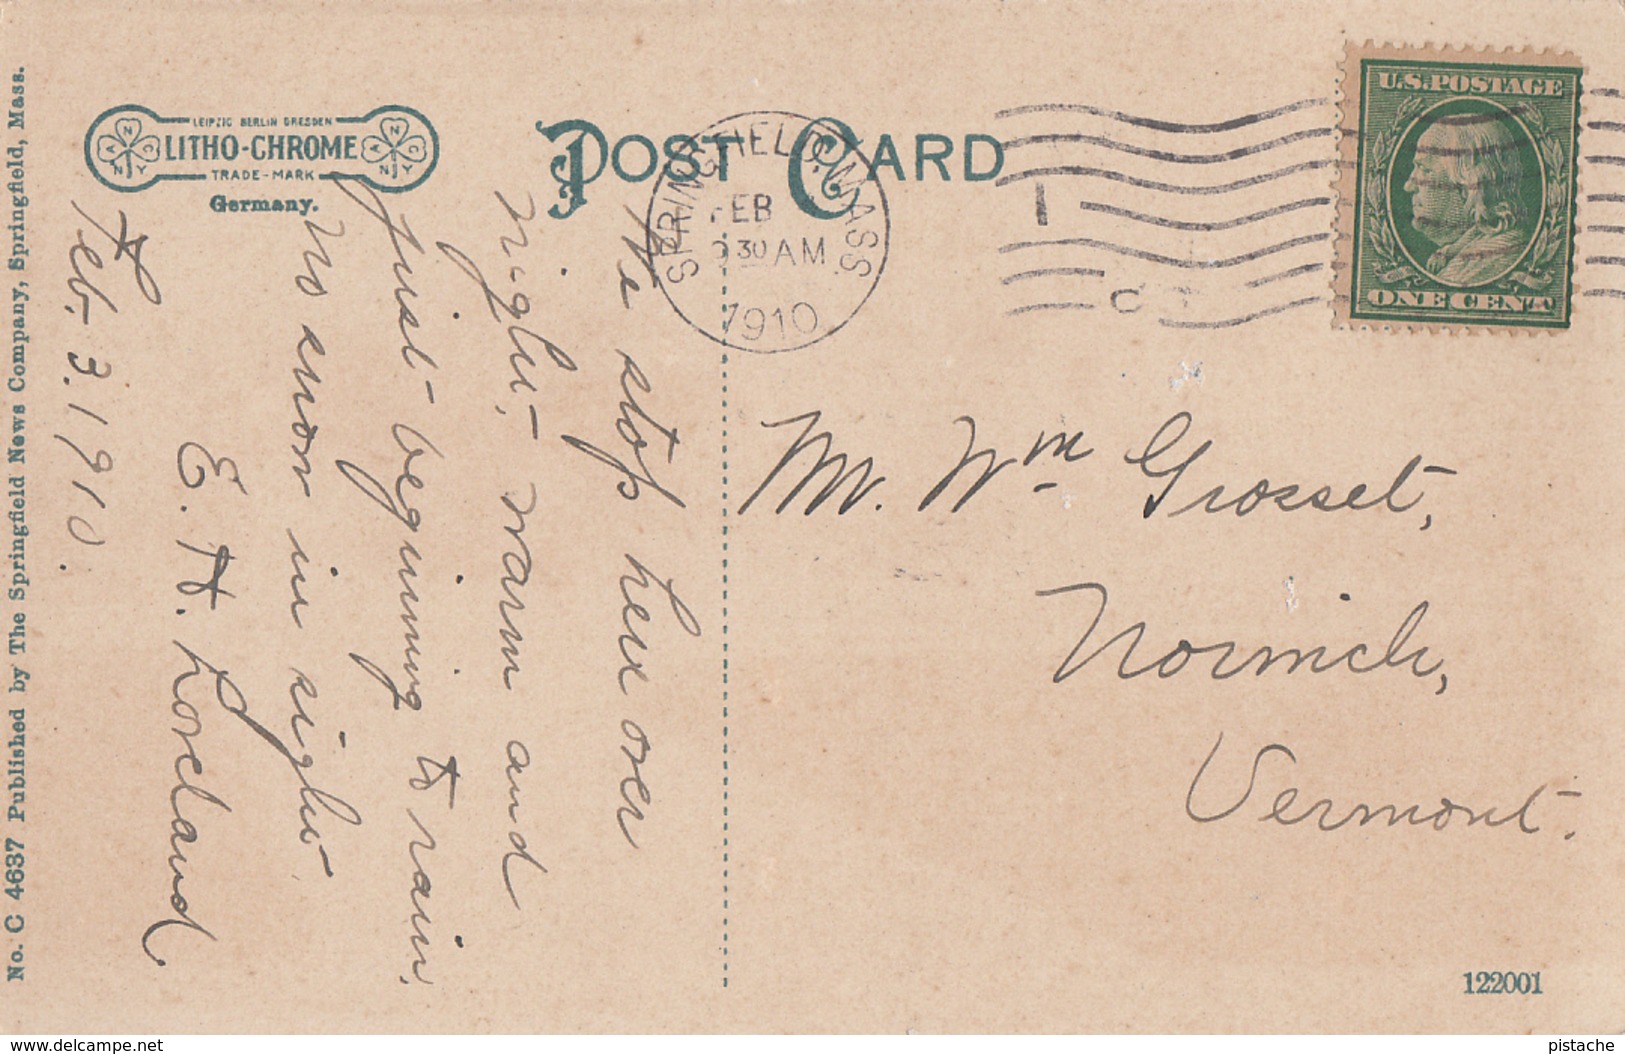 No. C 4637 Published by The Springfield News Company, Springfield, Mass.
LEIPZIG BERLIN DRESDEN
LITHO-CHROME
TRADE-MARK
Germany.
POST CARD
SPRINGFIELD, MASS.
FEB
30 AM
1910
1
U.S. POSTAGE
ONE CENT
Feb. 3. 1910.
We stop here over
night, warm and
just beginning to rain,
no snow in sight.
E. H. Loveland
Mr. Wm Grosset,
Norwich,
Vermont.
122001
www.delcampe.net
pistache